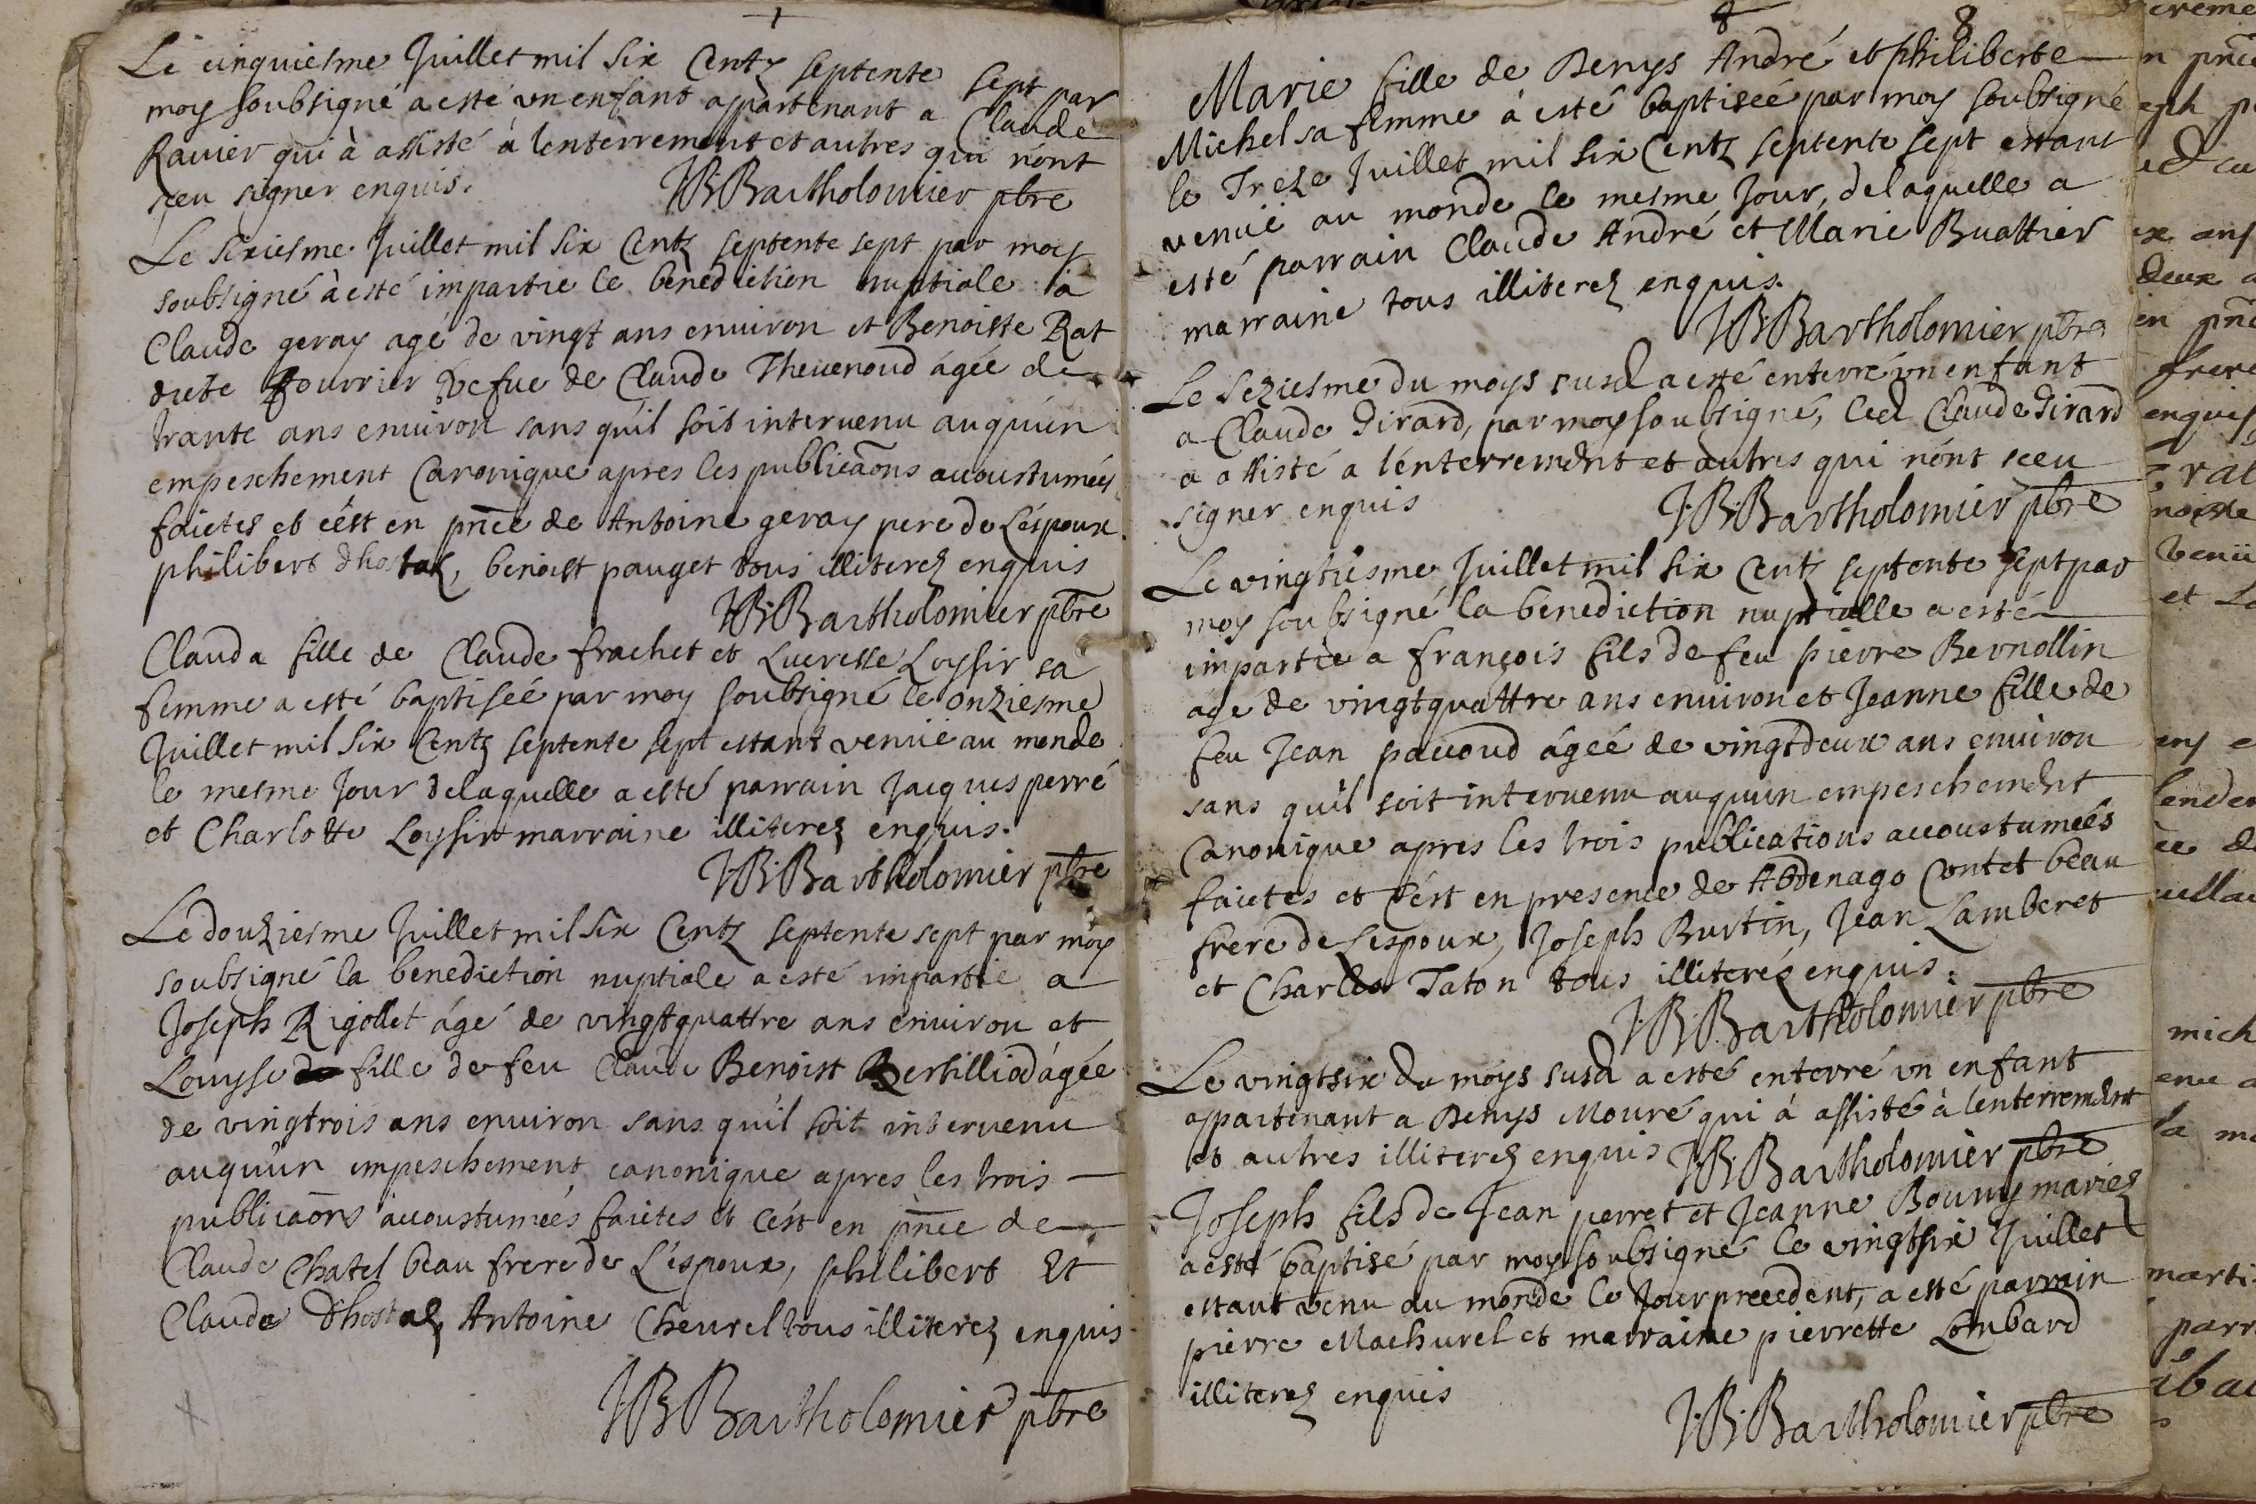 Le cinquiesme Juillet mil six Centz septente sept par
moy soubsigné a esté un enfant appartenant a Claude
Ravier qui à assisté à lenterrement et autres qui nónt
sceu signer enquis. JBBartholomier pbre
Le sixiesme Juillet mil six Centz septente sept par moy
soubsigné à esté impartie le benediction nuptiale à
Claude geray agé de vingt ans environ et Benoiste Rat
dicte fourrier Vefue de Claude Thevenoud ágée de
trante ans environ sans quíl soit intervenu auqu'un
empeschement Canonique apres les publicaons accoustumées
faictes et cést en pnce de Antoine geray pere de Léspoux
philibert dhostalz, benoist pauget tous illiterez enquis
JBBartholomier pbre
Clauda fille de Claude frachet et Lucresse Loysir sa
femme a esté baptiseé par moy soubsigné le onziesme
Juillet mil six Centz septente sept estant venuë au monde
le mesme Jour delaquelle a esté parrain Jacques perré
et Charlotte Loysir marraine illiterez enquis.
JBBartholomier pbre
Le douziesme Juillet mil six Centz septente sept par moy
soubsigné la benediction nuptiale a esté impartie a
Joseph Rigollet ágé de vingtquattre ans environ et
Louyse fille de feu Claude Benoist Bertilliod ágée
de vingtrois ans environ sans quíl soit intervenu
auqu'un empeschement canonique apres les trois
publicaons accoustumées faictes et cést en pnce de
Claude Chatel beau frere de Léspoux, philibert Et
Claude Dhostalz, Antoine Chevrel tous illiterez enquis
JBBartholomier pbre
8
Marie fille de Denys André et philiberte
Michel sa femme à esté baptiseé par moy soubsigné
le Treze Juillet mil six Centz septente sept estant
venuë au monde le mesme Jour, delaquelle a
esté parrain Claude André et Marie Buattier
marraine tous illiterez enquis.
JBBartholomier pbre
Le seziesme du moys susd a esté enterré un enfant
a Claude Girard, par moy soubsigné, led Claude Girard
a assisté a lénterrement et autres qui nónt sceu
signer enquis JBBartholomier pbre
Le vingtiesme Juillet mil six Centz septente sept par
moy soubsigné la benediction nuptialle a esté
impartie a françois fils de feu pierre Bernollin
agé de vingtquattre ans environ et Jeanne fille de
feu Jean pavoud ágeé de vingtdeux ans environ
sans quíl soit intervenu auquun empeschement
Canonique apres les trois publications accoustumeés
faictes et cést en presence de Abdenago Contet beau
frere de Lespoux, Joseph Burtin, Jean Lamberet
et Charles Taton tous illiteréz enquis.
JBBartholomier pbre
Le vingtsix du moys susd a esté enterré un enfant
appartenant a Denys Mouré qui á assisté à lenterrement
et autres illiterez enquis JBBartholomier pbre
Joseph fils de Jean perret et Jeanne Bouny mariez
a esté baptisé par moy soubsigné le vingtsix Juillet
estant venu au monde le Jour precedent, a esté parrain
pierre Machurel et marraine pierrette Lombard
illiterez enquis
JBBartholomier pbre